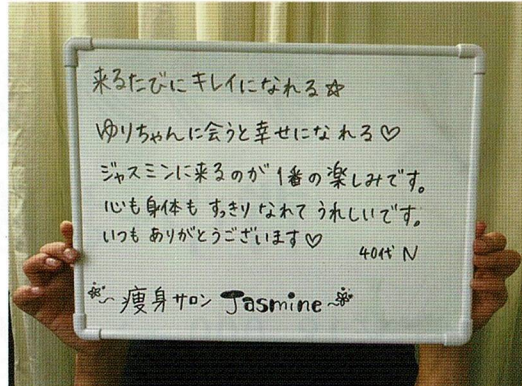 来るたびにキレイになれる☆
ゆりちゃんに会うと幸せになれる♡
ジャスミンに来るのが1番の楽しみです。
心も身体もすっきりなれてうれしいです。
いつもありがとうございます♡
40代 N
~痩身サロン Jasmine~